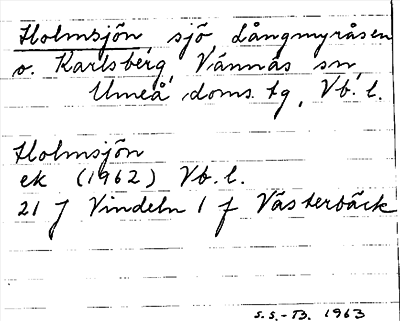 Holmsjön sjö, Långmyråsen
o. Karlsberg, Vännäs sn,
Umeå doms. tg, Vb. l.
Holmsjön
ek (1962) Vb. l.
21 J Vindeln 1 f Västerbäck
S.S.-TB. 1963